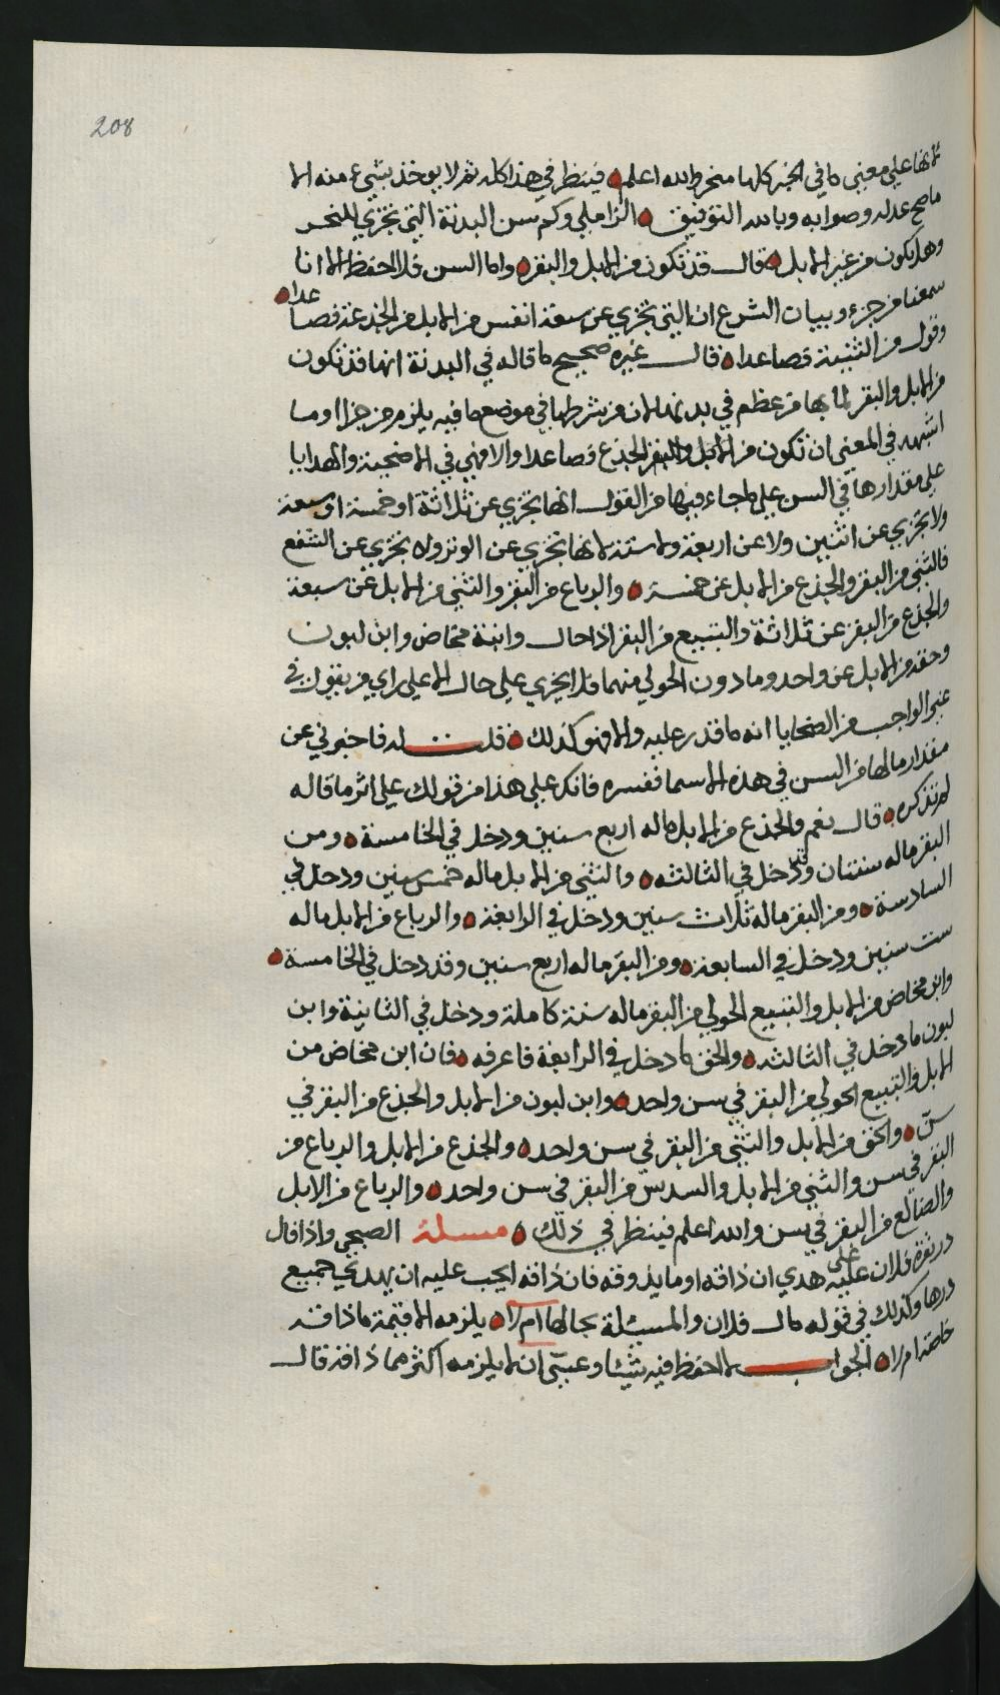 208
لانها على معنى ما في الخبر كلها منحر والله اعلم فينظر في هذا كله ثم لا يوخذ بشيء منه الا
ما صح عدله وصوابه وبالله التوفيق الزاملي وكم سن البدنة التي تجزي للنحر
وهل يكون من غير الابل قال قد تكون من الابل والبقر واما السن فلا احفظ الا انا
سمعنا من جزء وبيان الشرع ان التي تجزي عن سبعة انفس من الابل من الجذعة فصاعدا
وقول من الثنية فصاعدا قال غيره صحيح ما قاله في البدنة انها قد تكون
من الابل والبقر لما بها من عظم في بدنها لان من شرطها في موضع ما فيه يلزم من جزا او ما
اشبهه في المعنى ان تكون من الابل والبقر الجذع فصاعدا والا فهي في الاضحية والهدايا
على مقدارها في السن على ما جاء فيها من القول انها تجزي عن ثلاثة او خمسة او سبعة
ولا تجزي عن اثنين ولا عن اربعة ولا ستة لانها تجزي عن الوتر ولا تجزي عن الشفع
فالثني من البقر والجذع من الابل عن خمسة والرباع من البقر والثني من الابل عن سبعة
والجذع من البقر عن ثلاثة والتبيع من البقر اذا حال وابنة مخاض وابن لبون
وحقه من الابل عن واحد وما دون الحولي منهما فلا يجزي على حال الا على راي من يقول في
غير الواجب من الضحايا انه ما قدر عليه والا فهو كذلك قلت له فاخبرني عن
مقدار ما لها من السن في هذه الاسما ففسره فانك على هذا من قولك على اثر ما قاله
لم تذكره قال نعم والجذع من الابل ما له اربع سنين ودخل في الخامسة ومن
البقر ما له سنتان وقد دخل في الثالثه والثني من الابل ما له خمس سنين ودخل في
السادسة ومن البقر ما له ثلاث سنين ودخل في الرابعة والرباع من الابل ما له
ست سنين ودخل في السابعة ومن البقر ما له اربع سنين وقد دخل في الخامسة
وابن مخاض من الابل والتبيع الحولي من البقر ما له سنة كاملة ودخل في الثانية وابن
لبون ما دخل في الثالثه والحق ما دخل في الرابعة فاعرفه فان ابن مخاض من
الابل والتبيع الحولي من البقر في سن واحد وابن لبون من الابل والجذع من البقر في
سن والحق من الابل والثني من البقر في سن واحد والجذع من الابل والرباع من
البقر في سن والثني من الابل والسدس من البقر في سن واحد والرباع من الابل
والضالع من البقر في سن والله اعلم فينظر في ذلك مسئلة الصبحي واذا قال
در بقرة فلان عليه على هدي ان ذاقه او ما يذوقه فان ذاقه ايجب عليه ان يهدي جميع
درها وكذلك في قوله مال فلان والمسئلة بحالها ام لا يلزمه الا قيمة ما ذاقه
خاصة ام لا الجواب لا احفظ فيه شيئا وعسى ان لا يلزمه اكثر مما ذاقه قال